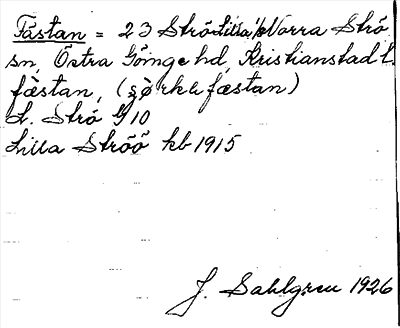 Fästan = 23 Strö Lilla Norra Strö
sn, Östra Göinge hd, Kristianstad l.
fæstan, (fæstan)
L. Strö G10
Lilla Ströö kb 1915
J. Sahlgren 1926